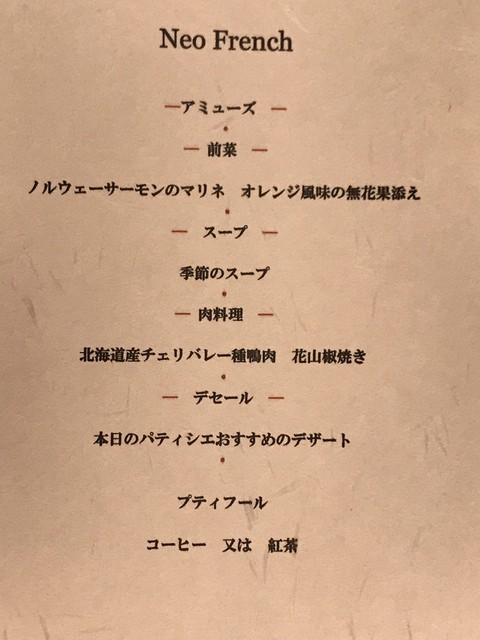 Neo French
― アミューズ ―
― 前菜 ―
ノルウェーサーモンのマリネ オレンジ風味の無花果添え
― スープ ―
季節のスープ
― 肉料理 ―
北海道産チェリバレー種鴨肉 花山椒焼き
― デセール ―
本日のパティシエおすすめのデザート
プティフール
コーヒー 又は 紅茶